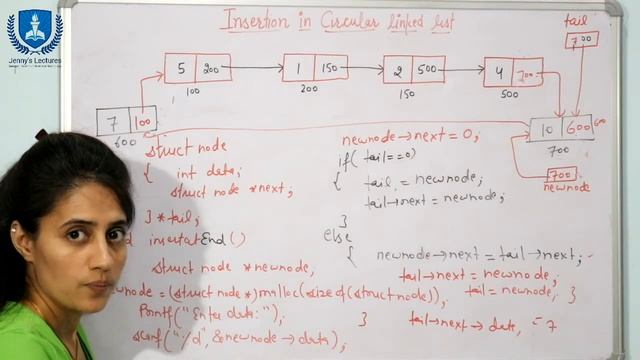 Jenny's Lectures
Insertion in Circular linked list
tail
700
5 200
1 150
2 500
4 700
100
200
150
500
7 100
600
10 600
700
700
newnode
struct node
{ int data;
struct node *next;
} *tail;
insertatEnd ( )
struct node *newnode,
= (struct node*) malloc(sizeof(struct node));
Printf("Enter data:");
scanf("%d", &newnode → data);
newnode → next = 0;
if( tail==0)
{ tail = newnode;
tail→next = newnode;
}
else
{ newnode→next = tail→next;
tail→next = newnode;
tail = newnode, }
}
tail→next → data, = 7